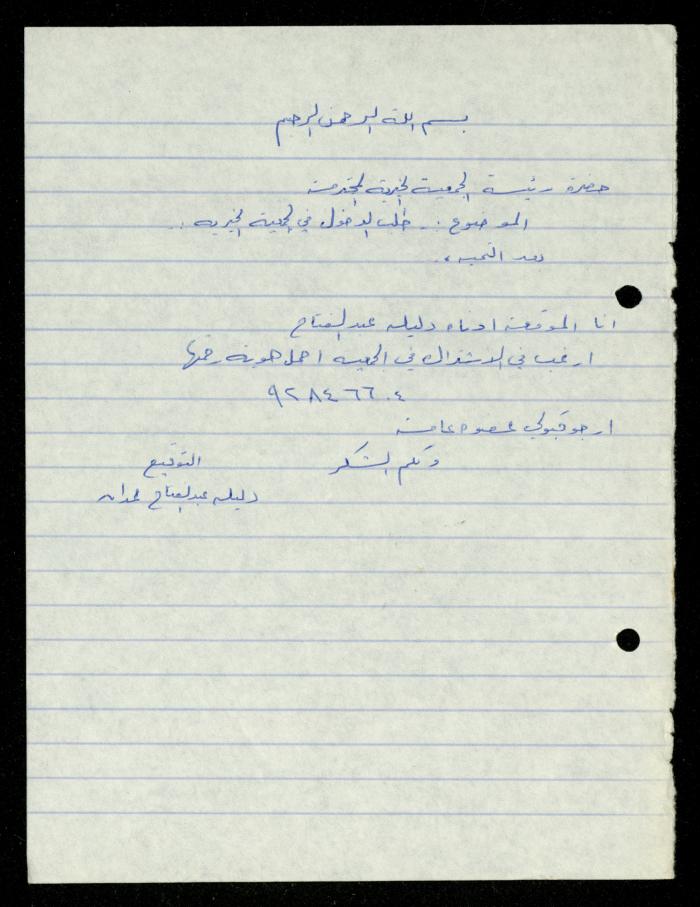 بسم الله الرحمن الرحيم
حضرة رئيسة الجمعية الخيرية المحترمة
الموضوع :. طلب الدخول في الجمعية الخيريه ..
بعد التحيه ،.
انا الموقعة ادناه دليله عبد الفتاح
ارغب في الاشتراك في الجمعيه احمل هوية رقمها
٩٢٨٤٦٦٠٤
ارجو قبولي عضوه عامة
ولكم الشكر
التوقيع
دليله عبد الفتاح